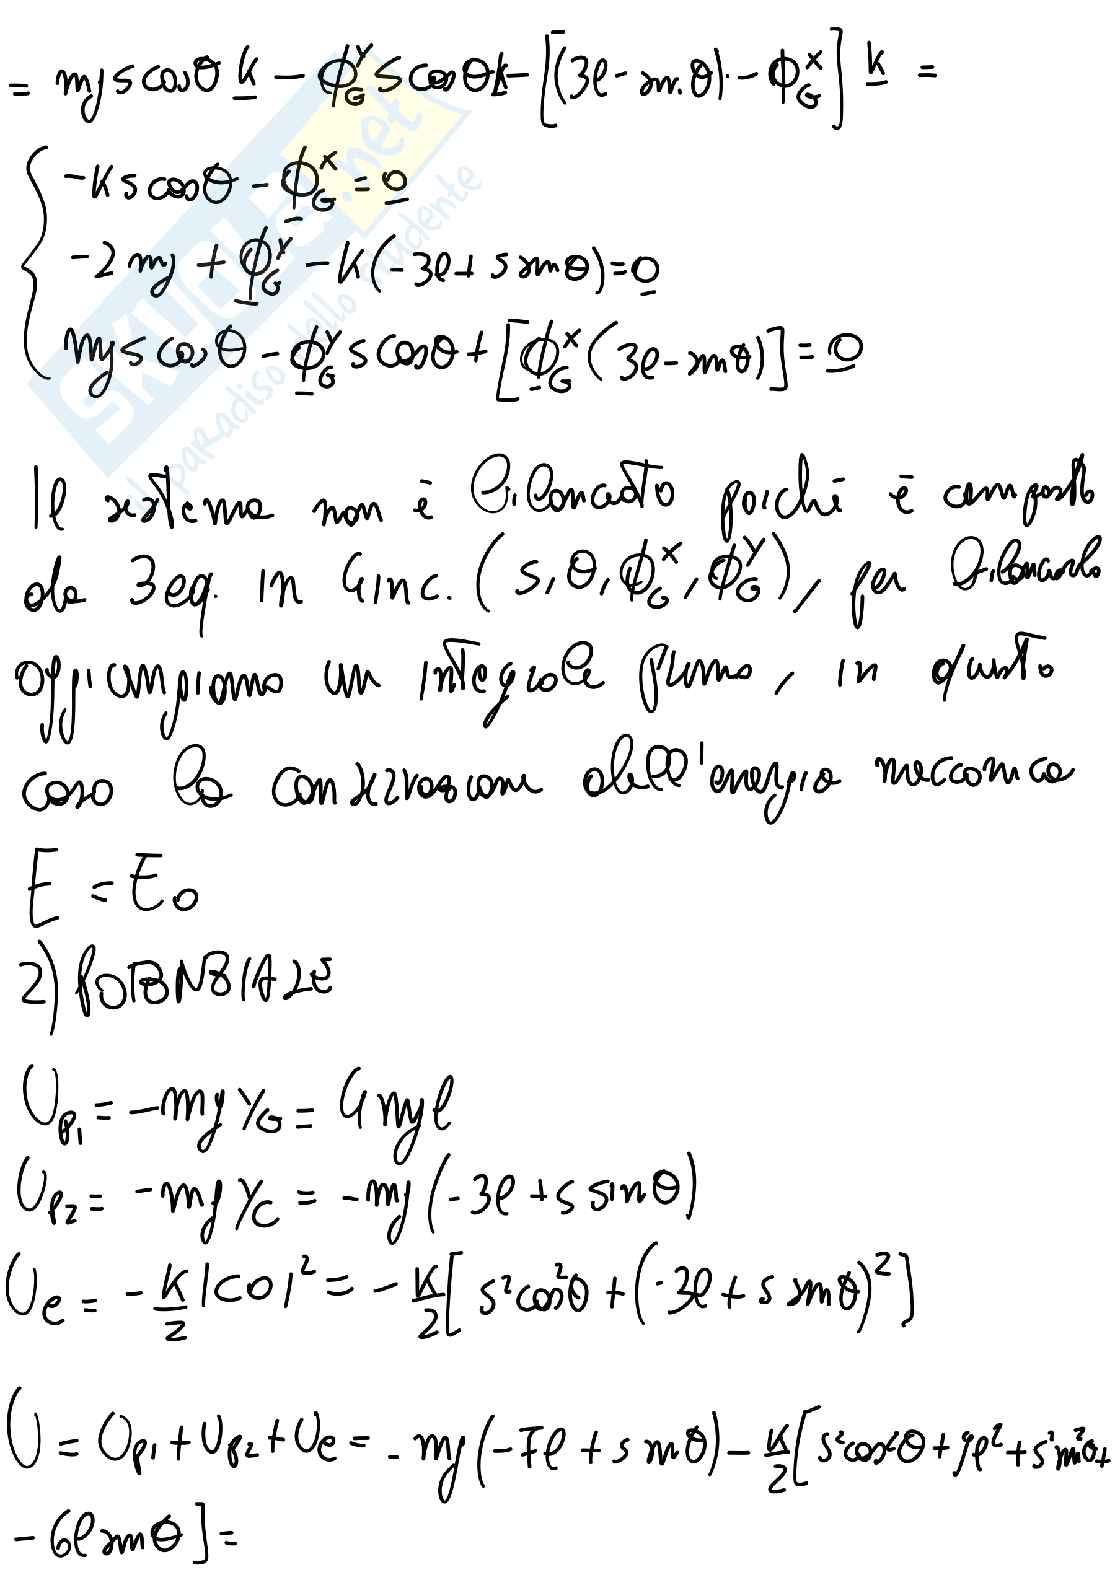 = mg s cosθ k - ϕ_G^Y s cosθ k - [(3l - sinθ) · - ϕ_G^X] k =
-K s cosθ - ϕ_G^X = 0
-2mg + ϕ_G^Y - K(-3l + s sinθ) = 0
mg s cosθ - ϕ_G^Y s cosθ + [ϕ_G^X (3l - sinθ)] = 0
Il sistema non è bilanciato poiché è composto
da 3 eq. in 4 inc. (s, θ, ϕ_G^X, ϕ_G^Y), per bilanciarlo
aggiungiamo un integrale primo, in questo
caso la conservazione dell'energia meccanica
E = E₀
2) POTENZIALE
U_P1 = -mg y_G = 4mgl
U_P2 = -mg y_C = -mg(-3l + s sinθ)
U_e = -K/2 |CO|² = -K/2 [s²cos²θ + (-3l + s sinθ)²]
U = U_P1 + U_P2 + U_e = -mg(-7l + s sinθ) - K/2 [s²cos²θ + 9l² + s²sin²θ +
- 6l sinθ] =
SKUOLA.net
il paradiso dello studente